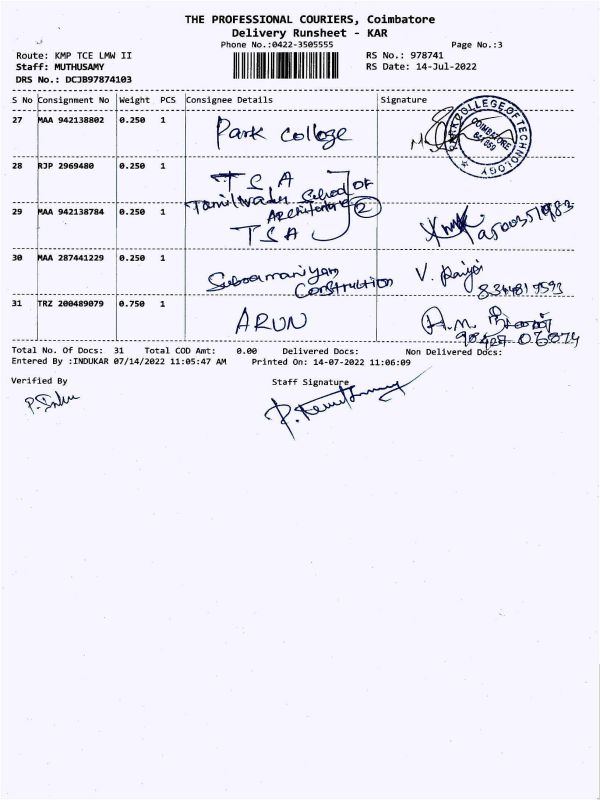 THE PROFESSIONAL COURIERS, Coimbatore
Delivery Runsheet - KAR
Phone No.:0422-3505555 Page No.:3
Route: KMP TCE LMW II RS No.: 978741
Staff: MUTHUSAMY RS Date: 14-Jul-2022
DRS No.: DCJB97874103
S No Consignment No Weight PCS Consignee Details Signature
27 MAA 942138802 0.250 1 Park College
PARK COLLEGE OF TECHNOLOGY
COIMBATORE
641 659
28 RJP 2969480 0.250 1 TSA
Tamilnadu School of
Architecture 2
29 MAA 942138784 0.250 1 TSA
30 MAA 287441229 0.250 1 Subramaniyam
Construction V.
31 TRZ 200489079 0.750 1 ARUN A.M.
Total No. Of Docs: 31 Total COD Amt: 0.00 Delivered Docs: Non Delivered Docs:
Entered By :INDUKAR 07/14/2022 11:05:47 AM Printed On: 14-07-2022 11:06:09
Verified By Staff Signature